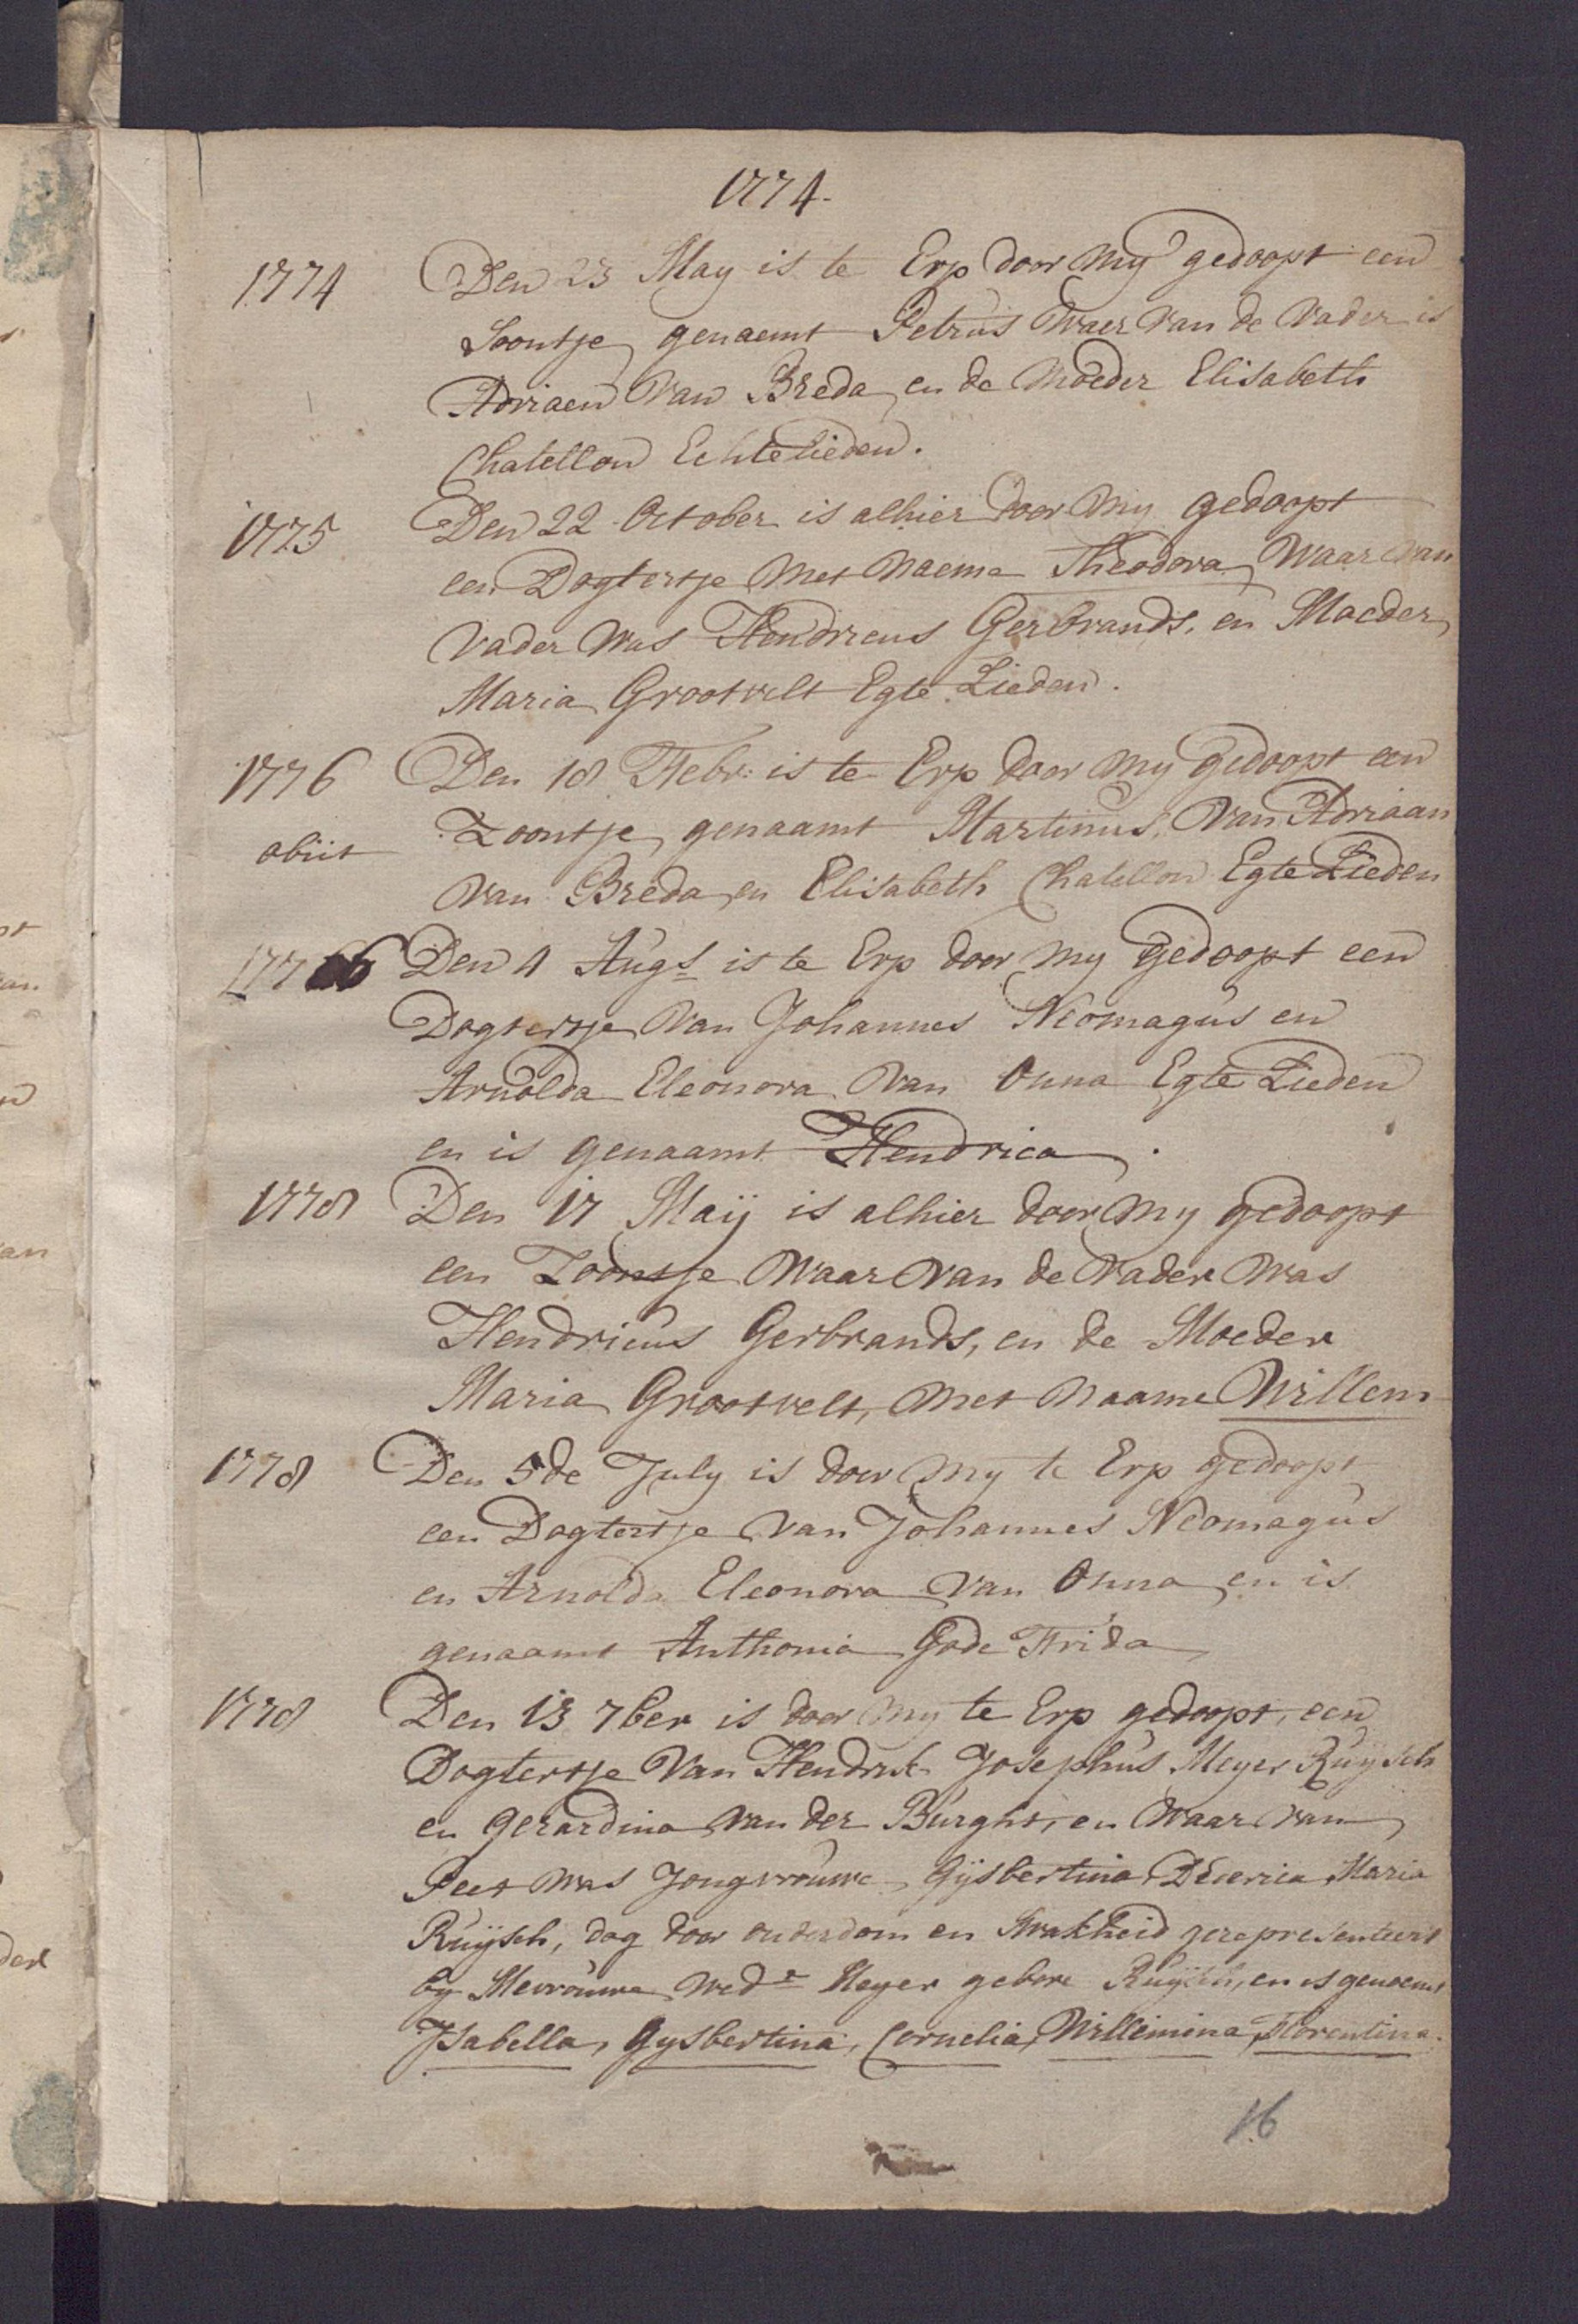 1774.
1774 Den 23 May is te Erp door my gedoopt een
Soontje genaemt Petrus waer van de vader is
Adriaen van Breda en de Moeder Elisabeth
Chatellon Echtelieden.
1775 Den 22 October is alhier door my gedoopt
een Dogtertje met naeme Theodora, waar van
vader was Hendricus Gerbrands, en Moeder
Maria Grootvelt Egte Lieden.
1776 Den 18 Febr: is te Erp door my gedoopt een
obiit Zoontje genaamt Martinus, van Adriaan
van Breda en Elisabeth Chatellon Egte Lieden
1776 Den 4 Augs is te Erp door my gedoopt een
Dogtertje van Johannes Neomagus en
Arnolda Eleonora van Onna Egte Lieden
en is genaamt Hendrica.
1778 Den 17 Maij is alhier door my gedoopt
een Zoontje waar van de vader was
Hendricus Gerbrands, en de Moeder
Maria Grootvelt, met naame Willem
1778 Den 5de July is door my te Erp gedoopt
een Dogtertje van Johannes Neomagus
en Arnolda Eleonora van Onna en is
genaamt Anthonia Gode Frida
1778 Den 13 7ber is door my te Erp gedoopt, een
Dogtertje van Hendrik Josephus Meyer Ruysch
en Gerardina van der Burght, en waar van
Peet was Jongvrouwe Gijsbertina Maria
Ruijsch, dog door ouderdom en swakheid gerepresenteert
by Mevrouwe wede Meyer gebore Ruijsch, en is genoemt
Isabella, Gysbertina, Cornelia, Willemina, Florentina.
16